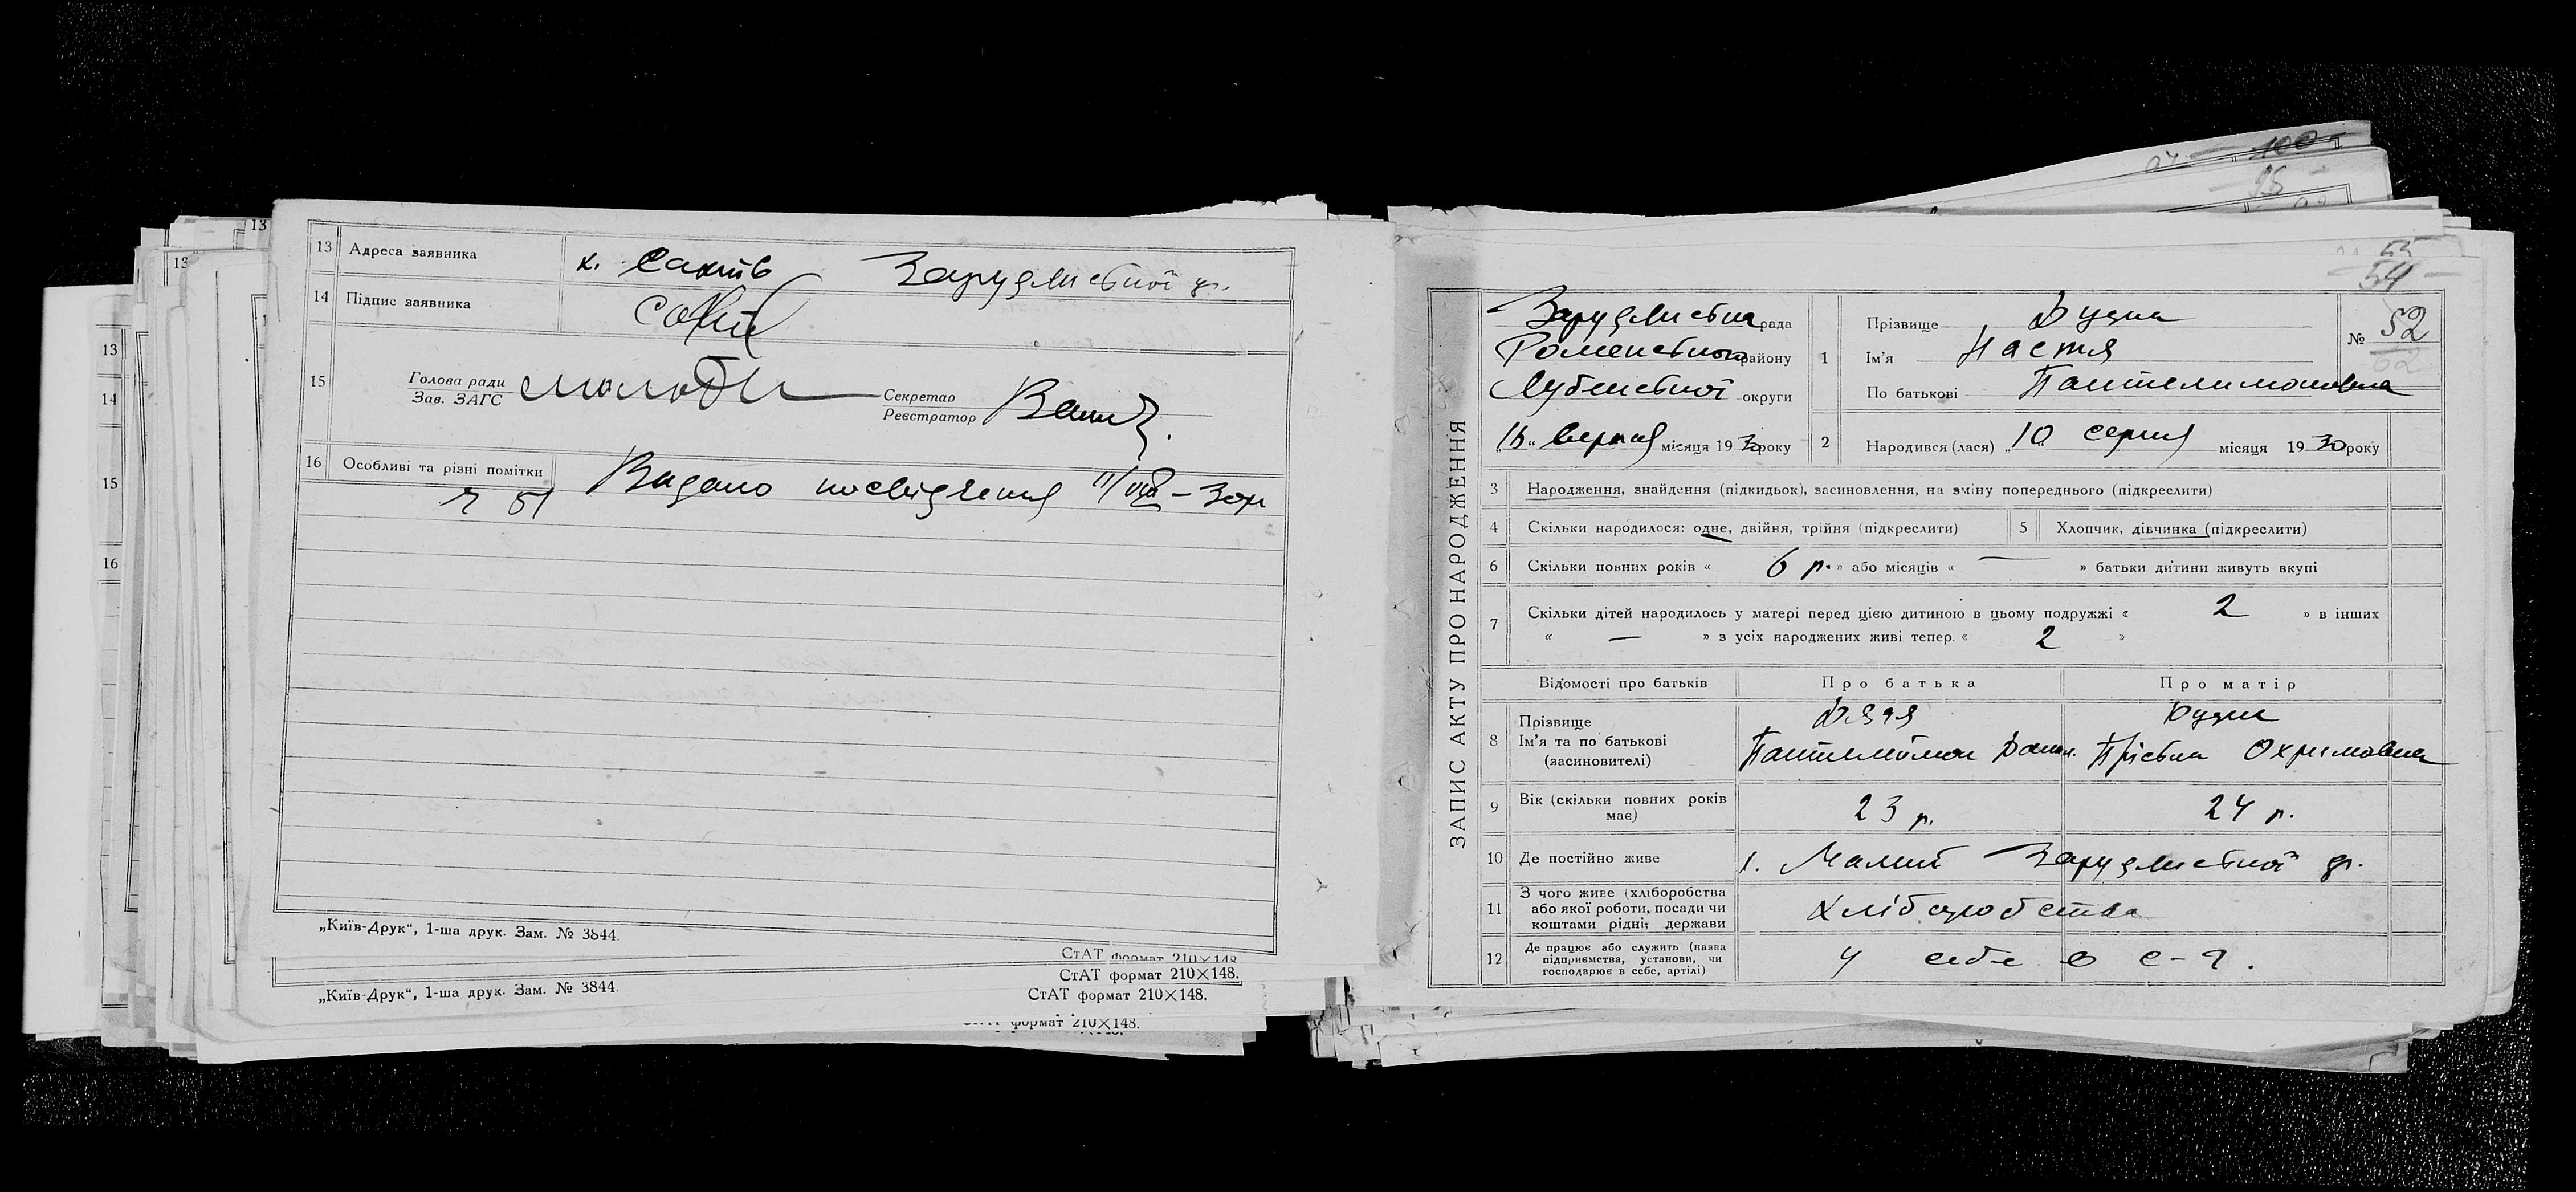 13 Адреса заявника х. Сакіів Зарудлиської
14 Підпис заявника
15 Голова ради
Зав. ЗАГС
Секретар
Реєстратор
16 Особливі та різні помітки Видано посвідчення 11/VIII – 30 р
51
„Київ-Друк“, 1-ша друк. Зам. № 3844.
СтАТ формат 210×148.
СтАТ формат 210×148.
„Київ-Друк“, 1-ша друк. Зам. № 3844.
СтАТ формат 210×148.
СтАТ формат 210×148.
13
13
13
14
15
16
100
95
55
54
ЗАПИС АКТУ ПРО НАРОДЖЕННЯ
рада
Роменського району
Лубенської округи
серпня місяця 1930 року
1 Прізвище Дудка
Ім’я Настя
По батькові Пантелимоновна
№ 52
2 Народився (лася) „10 серпня місяця 1930 року
3 Народження, знайдення (підкидьок), засиновлення, на зміну попереднього (підкреслити)
4 Скільки народилося: одне, двійня, трійня (підкреслити) 5 Хлопчик, дівчинка (підкреслити)
6 Скільки повних років « 6 р. » або місяців « — » батьки дитини живуть вкупі
7 Скільки дітей народилось у матері перед цією дитиною в цьому подружжі « 2 » в інших
« — » з усіх народжених живі тепер « 2 »
Відомості про батьків Про батька Про матір
8 Прізвище
Ім’я та по батькові
(засиновителі)
Пантелимон Дудка Прісьна Охримовна
9 Вік (скільки повних років має) 23 р. 24 р.
10 Де постійно живе
11 З чого живе (хліборобства або якої роботи, посади чи коштами рідні, держави хліборобства
12 Де працює або служить (назва підприємства, установи, чи господарює в себе, артілі) У себе в с-г.